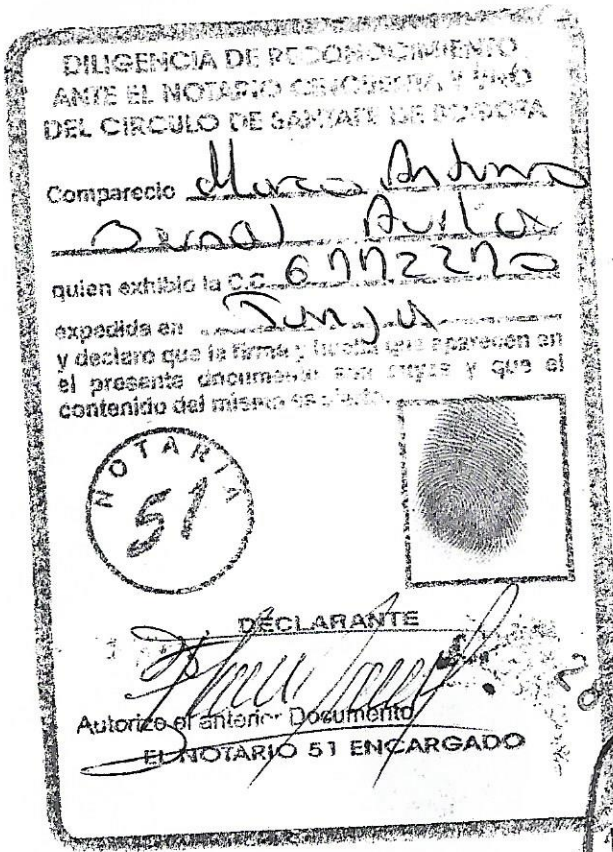 DILIGENCIA DE RECONOCIMIENTO
ANTE EL NOTARIO CINCUENTA Y UNO
DEL CIRCULO DE SANTAFE DE BOGOTA
Comparecio Marco Antonio
Bernal Avila
quien exhibio la C.C. 6772270
expedida en Tunja
y declaro que la firma y huella que aparecen en
el presente documento son suyas y que el
contenido del mismo es cierto.
NOTARIA
51
DECLARANTE
Autorizo el anterior Documento
EL NOTARIO 51 ENCARGADO